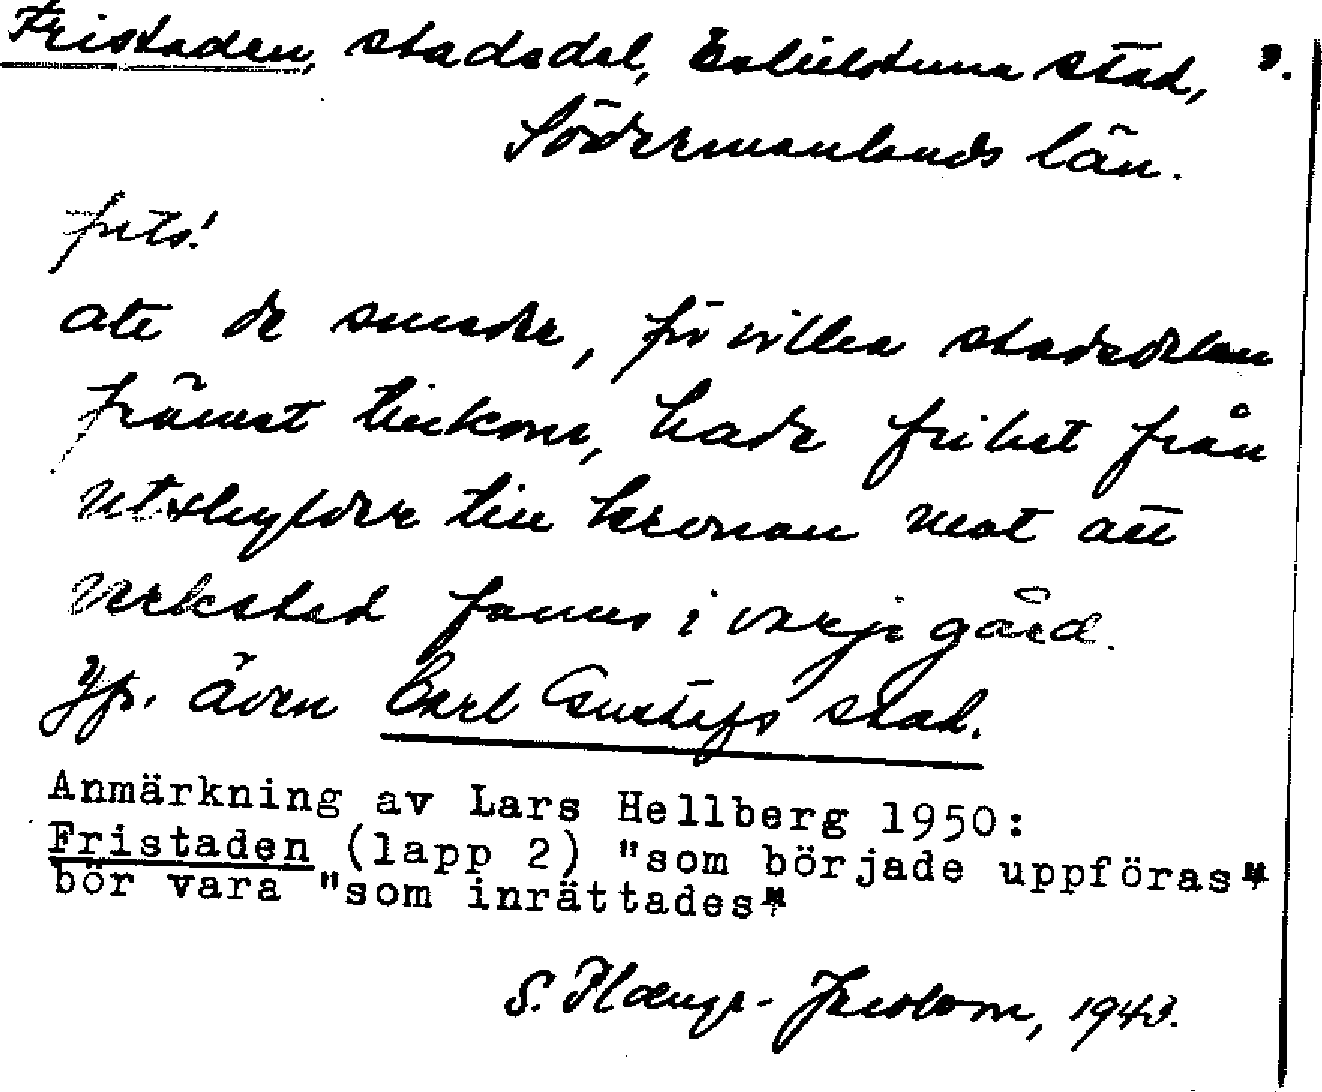 Fristaden, stadsdel, Eskilstuna stad, 3.
Södermanlands län.
forts!
att de smeder, för vilka stadsdelen
främst tillkom, hade frihet från
utskylder till kronan mot att
verkstad fanns i varje gård.
Jfr. även Carl Gustafs stad.
Anmärkning av Lars Hellberg 1950:
Fristaden (lapp 2) "som började uppföras"
bör vara "som inrättades"
S. 1943.